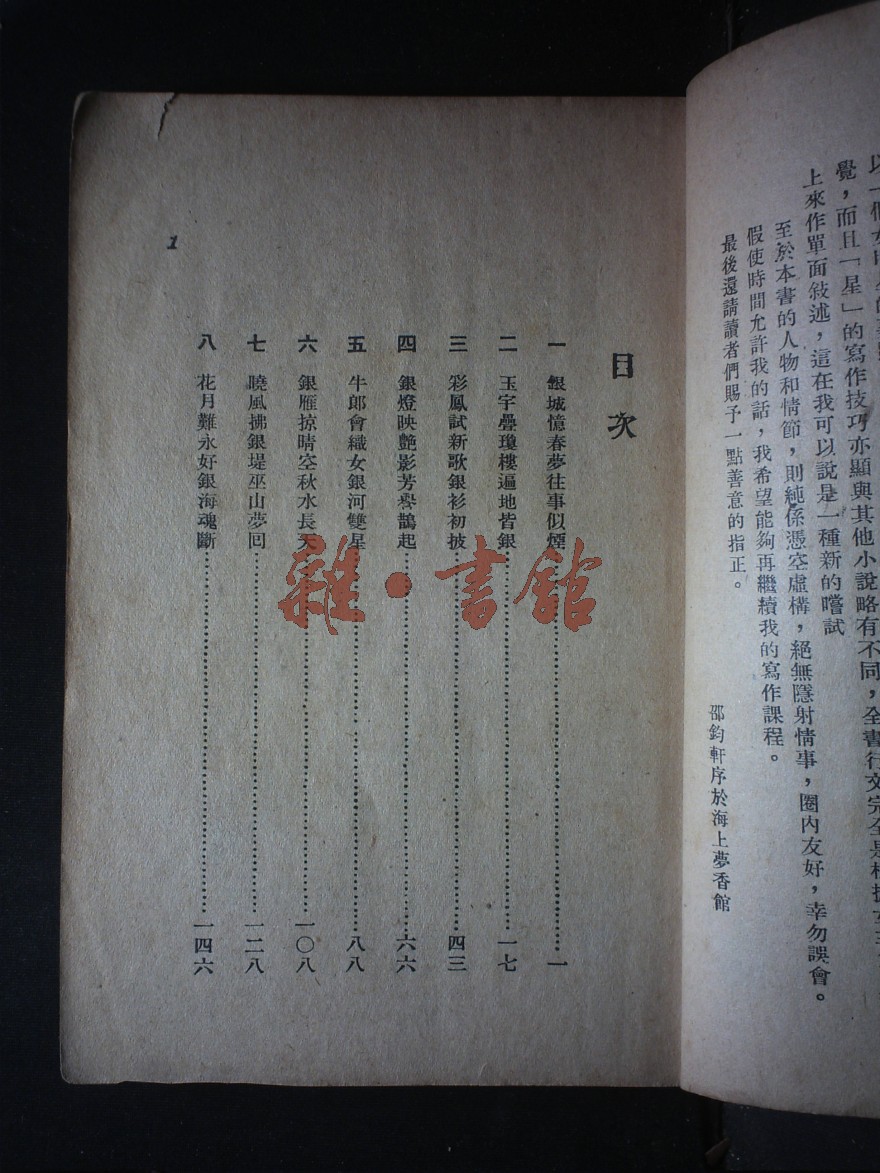 覺，而且「星」的寫作技巧亦顯與其他小說略有不同，全書行文完全是
上來作單面敍述，這在我可以說是一種新的嚐試
至於本書的人物和情節，則純係憑空虛構，絕無隱射情事，圈內友好，幸勿誤會。
假使時間允許我的話，我希望能夠再繼續我的寫作課程。
最後還請讀者們賜予一點善意的指正。
邵鈞軒序於海上夢香館
目次
一 銀城憶春夢往事似煙……一
二 玉宇疊瓊樓遍地皆銀……一七
三 彩鳳試新歌銀衫初披……四三
四 銀燈映艷影芳譽鵲起……六六
五 牛郎會織女銀河雙星……八八
六 銀雁掠晴空秋水長天……一〇八
七 曉風拂銀堤巫山夢回……一二八
八 花月難永好銀海魂斷……一四六
1
雜·書館